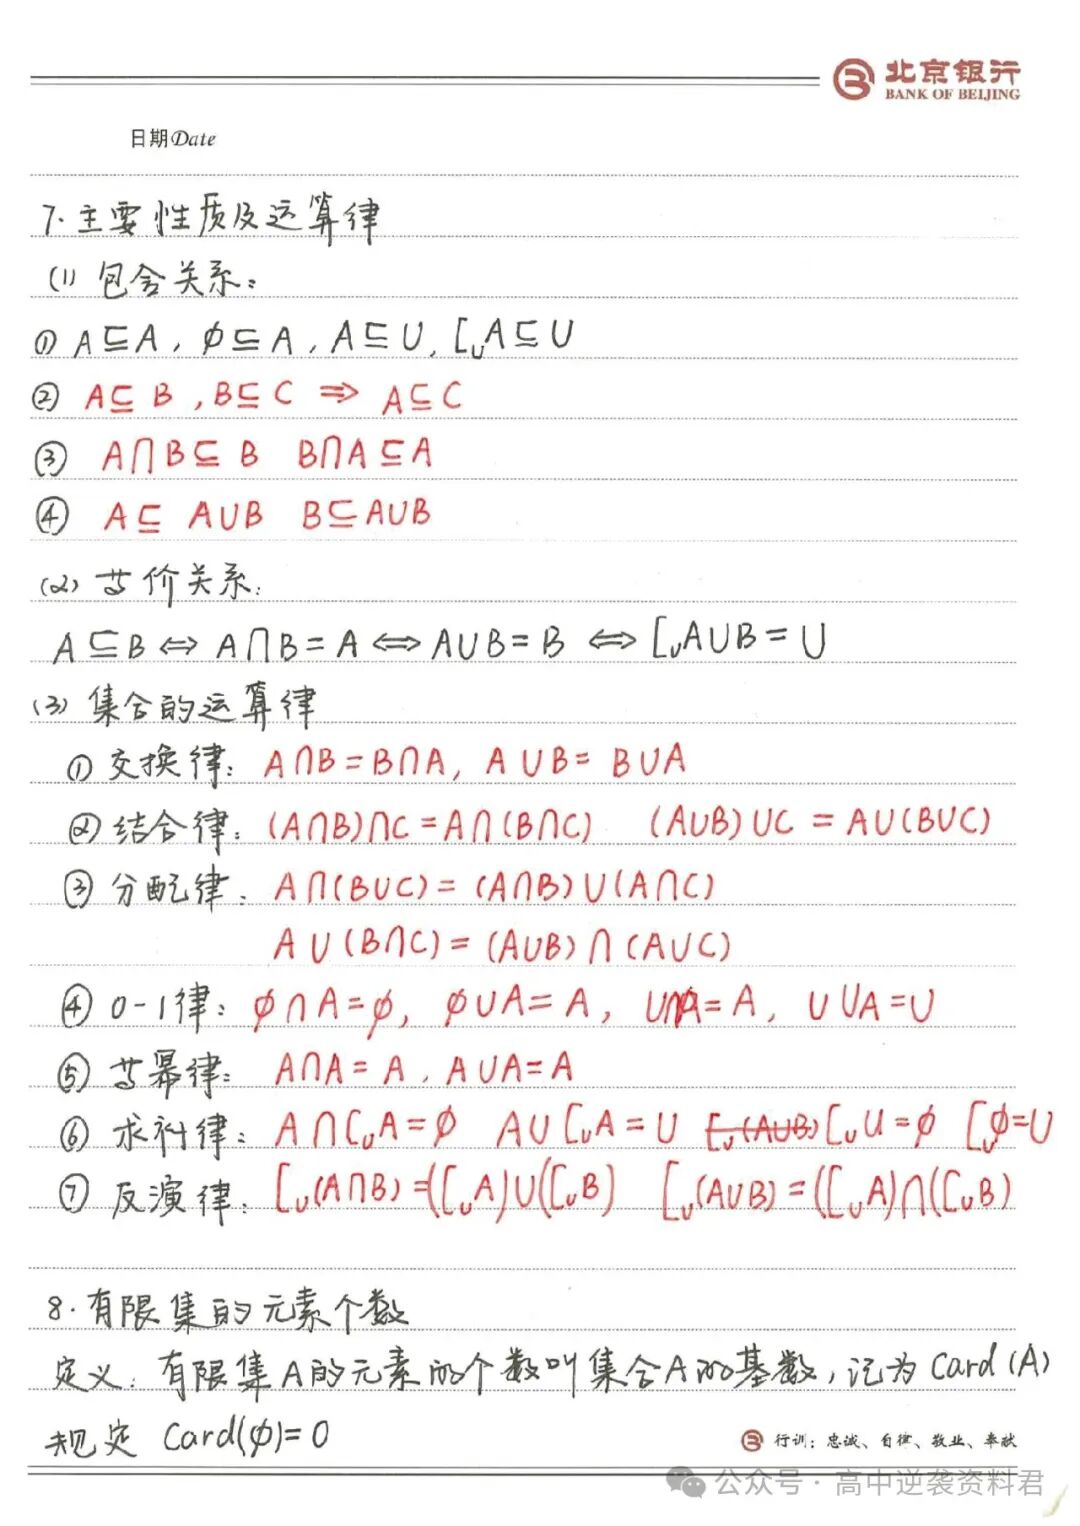 北京银行
BANK OF BEIJING
日期Date
7.主要性质及运算律
(1) 包含关系:
① A⊆A, ∅⊆A, A⊆U, ∁ᵤA⊆U
② A⊆B, B⊆C ⇒ A⊆C
③ A∩B⊆B B∩A⊆A
④ A⊆A∪B B⊆A∪B
(2) 等价关系:
A⊆B⇔A∩B=A⇔A∪B=B⇔∁ᵤA∪B=U
(3) 集合的运算律
① 交换律: A∩B=B∩A, A∪B=B∪A
② 结合律: (A∩B)∩C=A∩(B∩C) (A∪B)∪C=A∪(B∪C)
③ 分配律: A∩(B∪C)=(A∩B)∪(A∩C)
A∪(B∩C)=(A∪B)∩(A∪C)
④ 0-1律: ∅∩A=∅, ∅∪A=A, U∩A=A, U∪A=U
⑤ 等幂律: A∩A=A, A∪A=A
⑥ 求补律: A∩∁ᵤA=∅ A∪∁ᵤA=U ∁ᵤ(A∪B) ∁ᵤU=∅ ∁ᵤ∅=U
⑦ 反演律: ∁ᵤ(A∩B)=(∁ᵤA)∪(∁ᵤB) ∁ᵤ(A∪B)=(∁ᵤA)∩(∁ᵤB)
8.有限集的元素个数
定义: 有限集A的元素的个数叫集合A的基数, 记为Card(A)
规定 Card(∅)=0
行训: 忠诚、自律、敬业、奉献
公众号·高中逆袭资料君